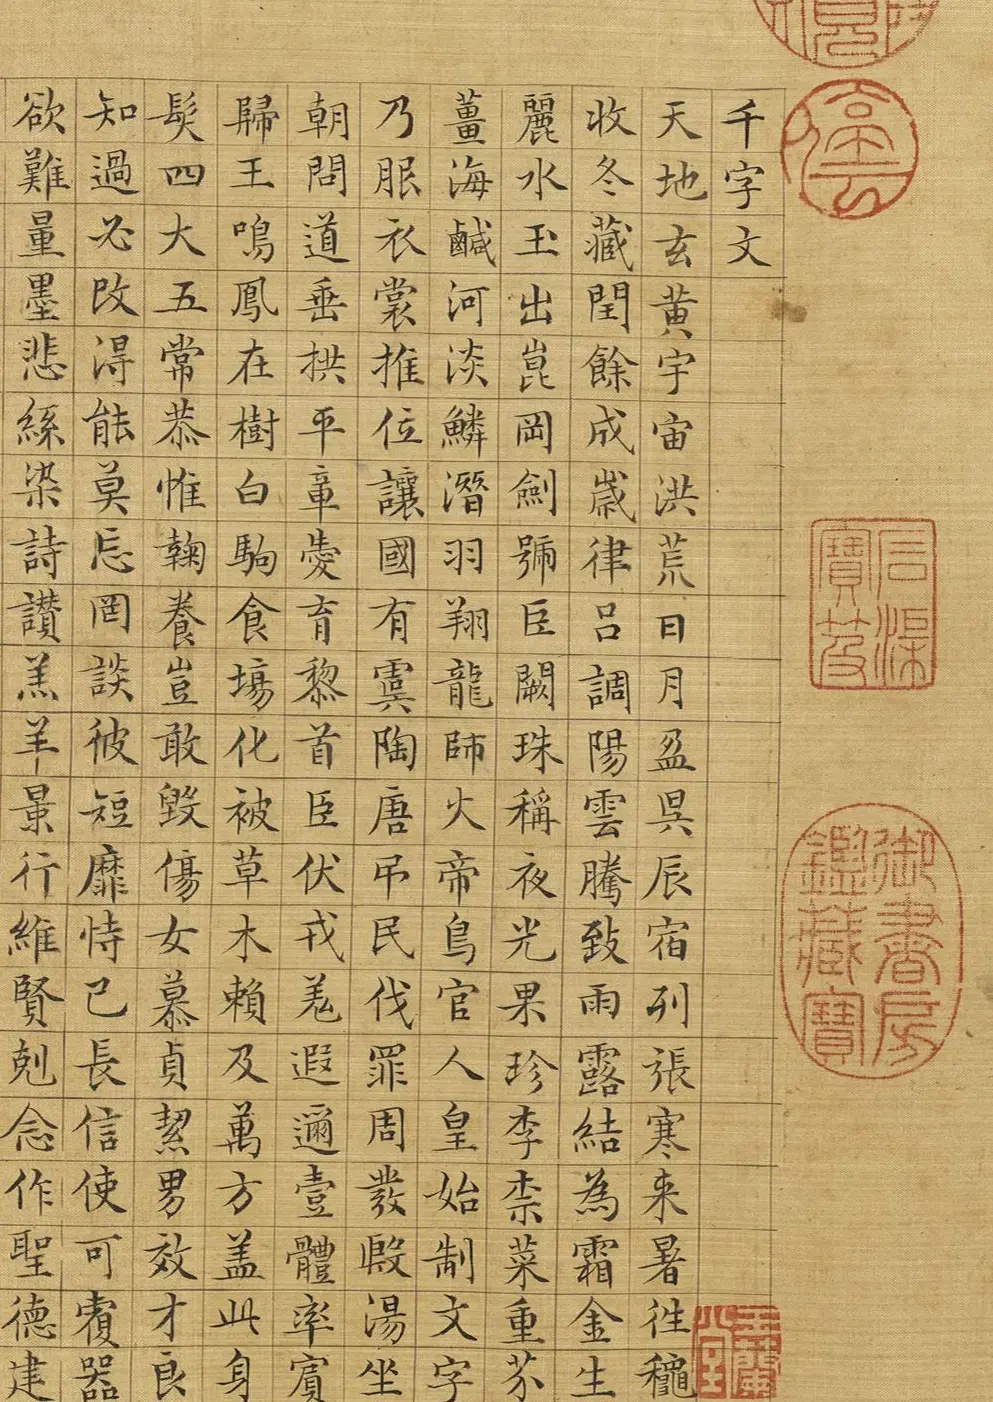 千字文
天地玄黄宇宙洪荒日月盈昃辰宿列張寒来暑徃穐
收冬藏閏餘成歲律吕調陽雲騰致雨露結為霜金生
麗水玉出崑岡劍號巨闕珠稱夜光果珍李柰菜重芥
薑海鹹河淡鱗潛羽翔龍師火帝鳥官人皇始制文字
乃服衣裳推位讓國有虞陶唐弔民伐罪周發殷湯坐
朝問道垂拱平章愛育黎首臣伏戎羌遐邇壹體率賓
歸王鳴鳳在樹白駒食場化被草木賴及萬方盖此身
髮四大五常恭惟鞠養豈敢毀傷女慕貞絜男效才良
知過必改得能莫忘罔談彼短靡恃己長信使可覆器
欲難量墨悲絲染詩讃羔羊景行維賢剋念作聖德建
石渠
寶笈
御書房
鑑藏寶